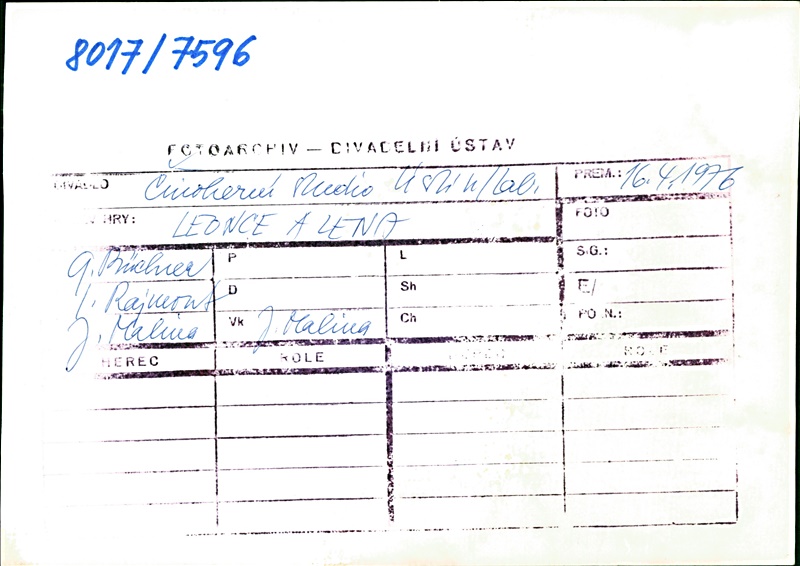 8017/7596
FOTOARCHIV — DIVADELNÍ ÚSTAV
DIVADLO Činoherní studio Ústí n/Lab. PREM.: 16.4.1976
HRY: LEONCE A LENA FOTO
G. Büchner P L SIG.:
I. Rajmont D Sh E/
J. Malina Vk J. Malina Ch PO N.:
HEREC ROLE HEREC ROLE